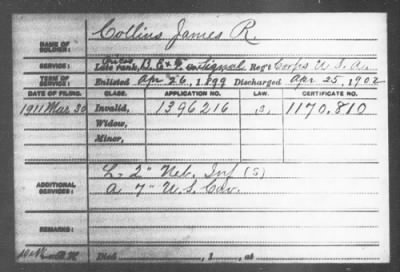 Collins James R.
NAME OF SOLDIER:
SERVICE: Late rank, Signal Reg't Corps U.S.A.
TERM OF SERVICE: Enlisted Apr 26, 1899 Discharged Apr. 25, 1902
DATE OF FILING. CLASS. APPLICATION NO. LAW. CERTIFICATE NO.
1911 Mar 30 Invalid, 1396216 1170.810
Widow,
Minor,
ADDITIONAL SERVICES: L. 2" Neb. Inf (S)
A 7" U.S. Cav.
REMARKS:
Died , 1 , at